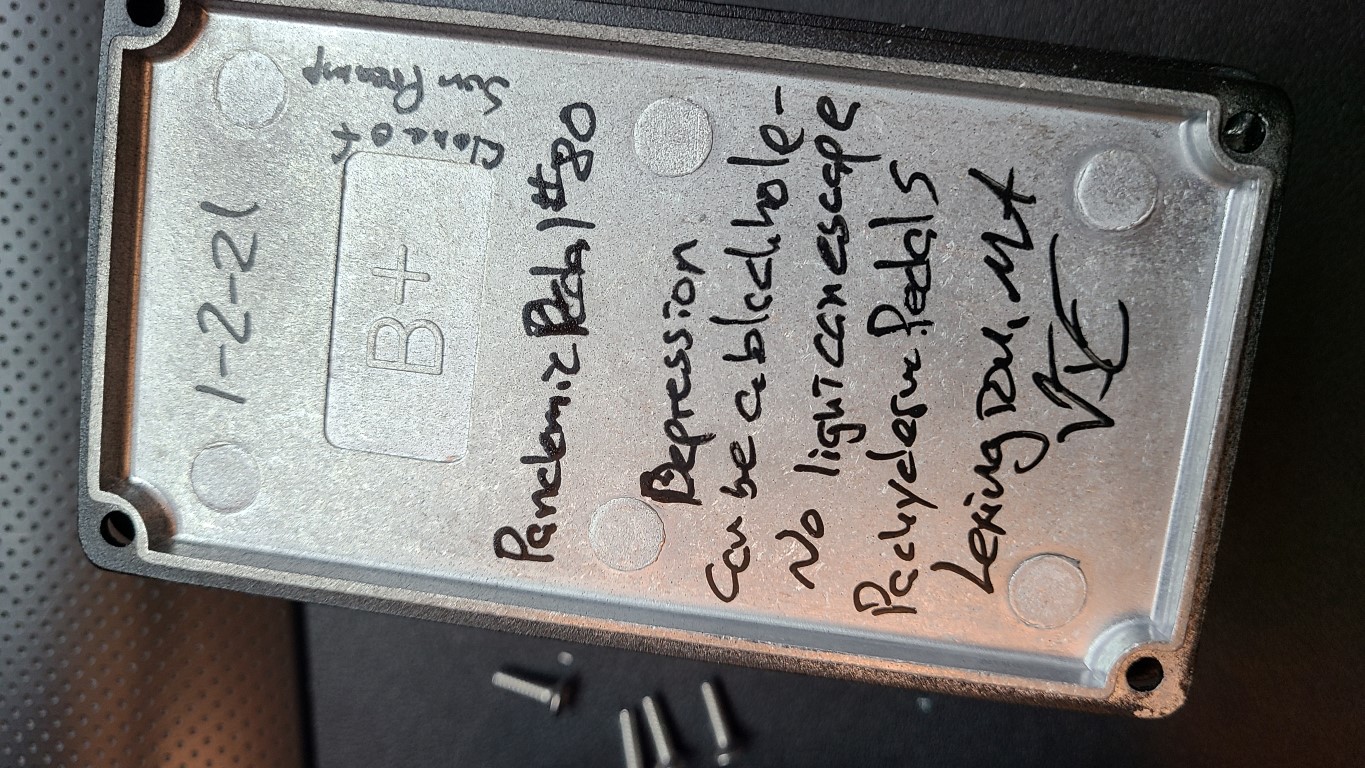 1-2-21
B+
Clone of
Sunn Preamp
Pandemic Pedal #80
Depression
Can be a black hole-
No light can escape
Pachyderm Pedals
Lexington, MA